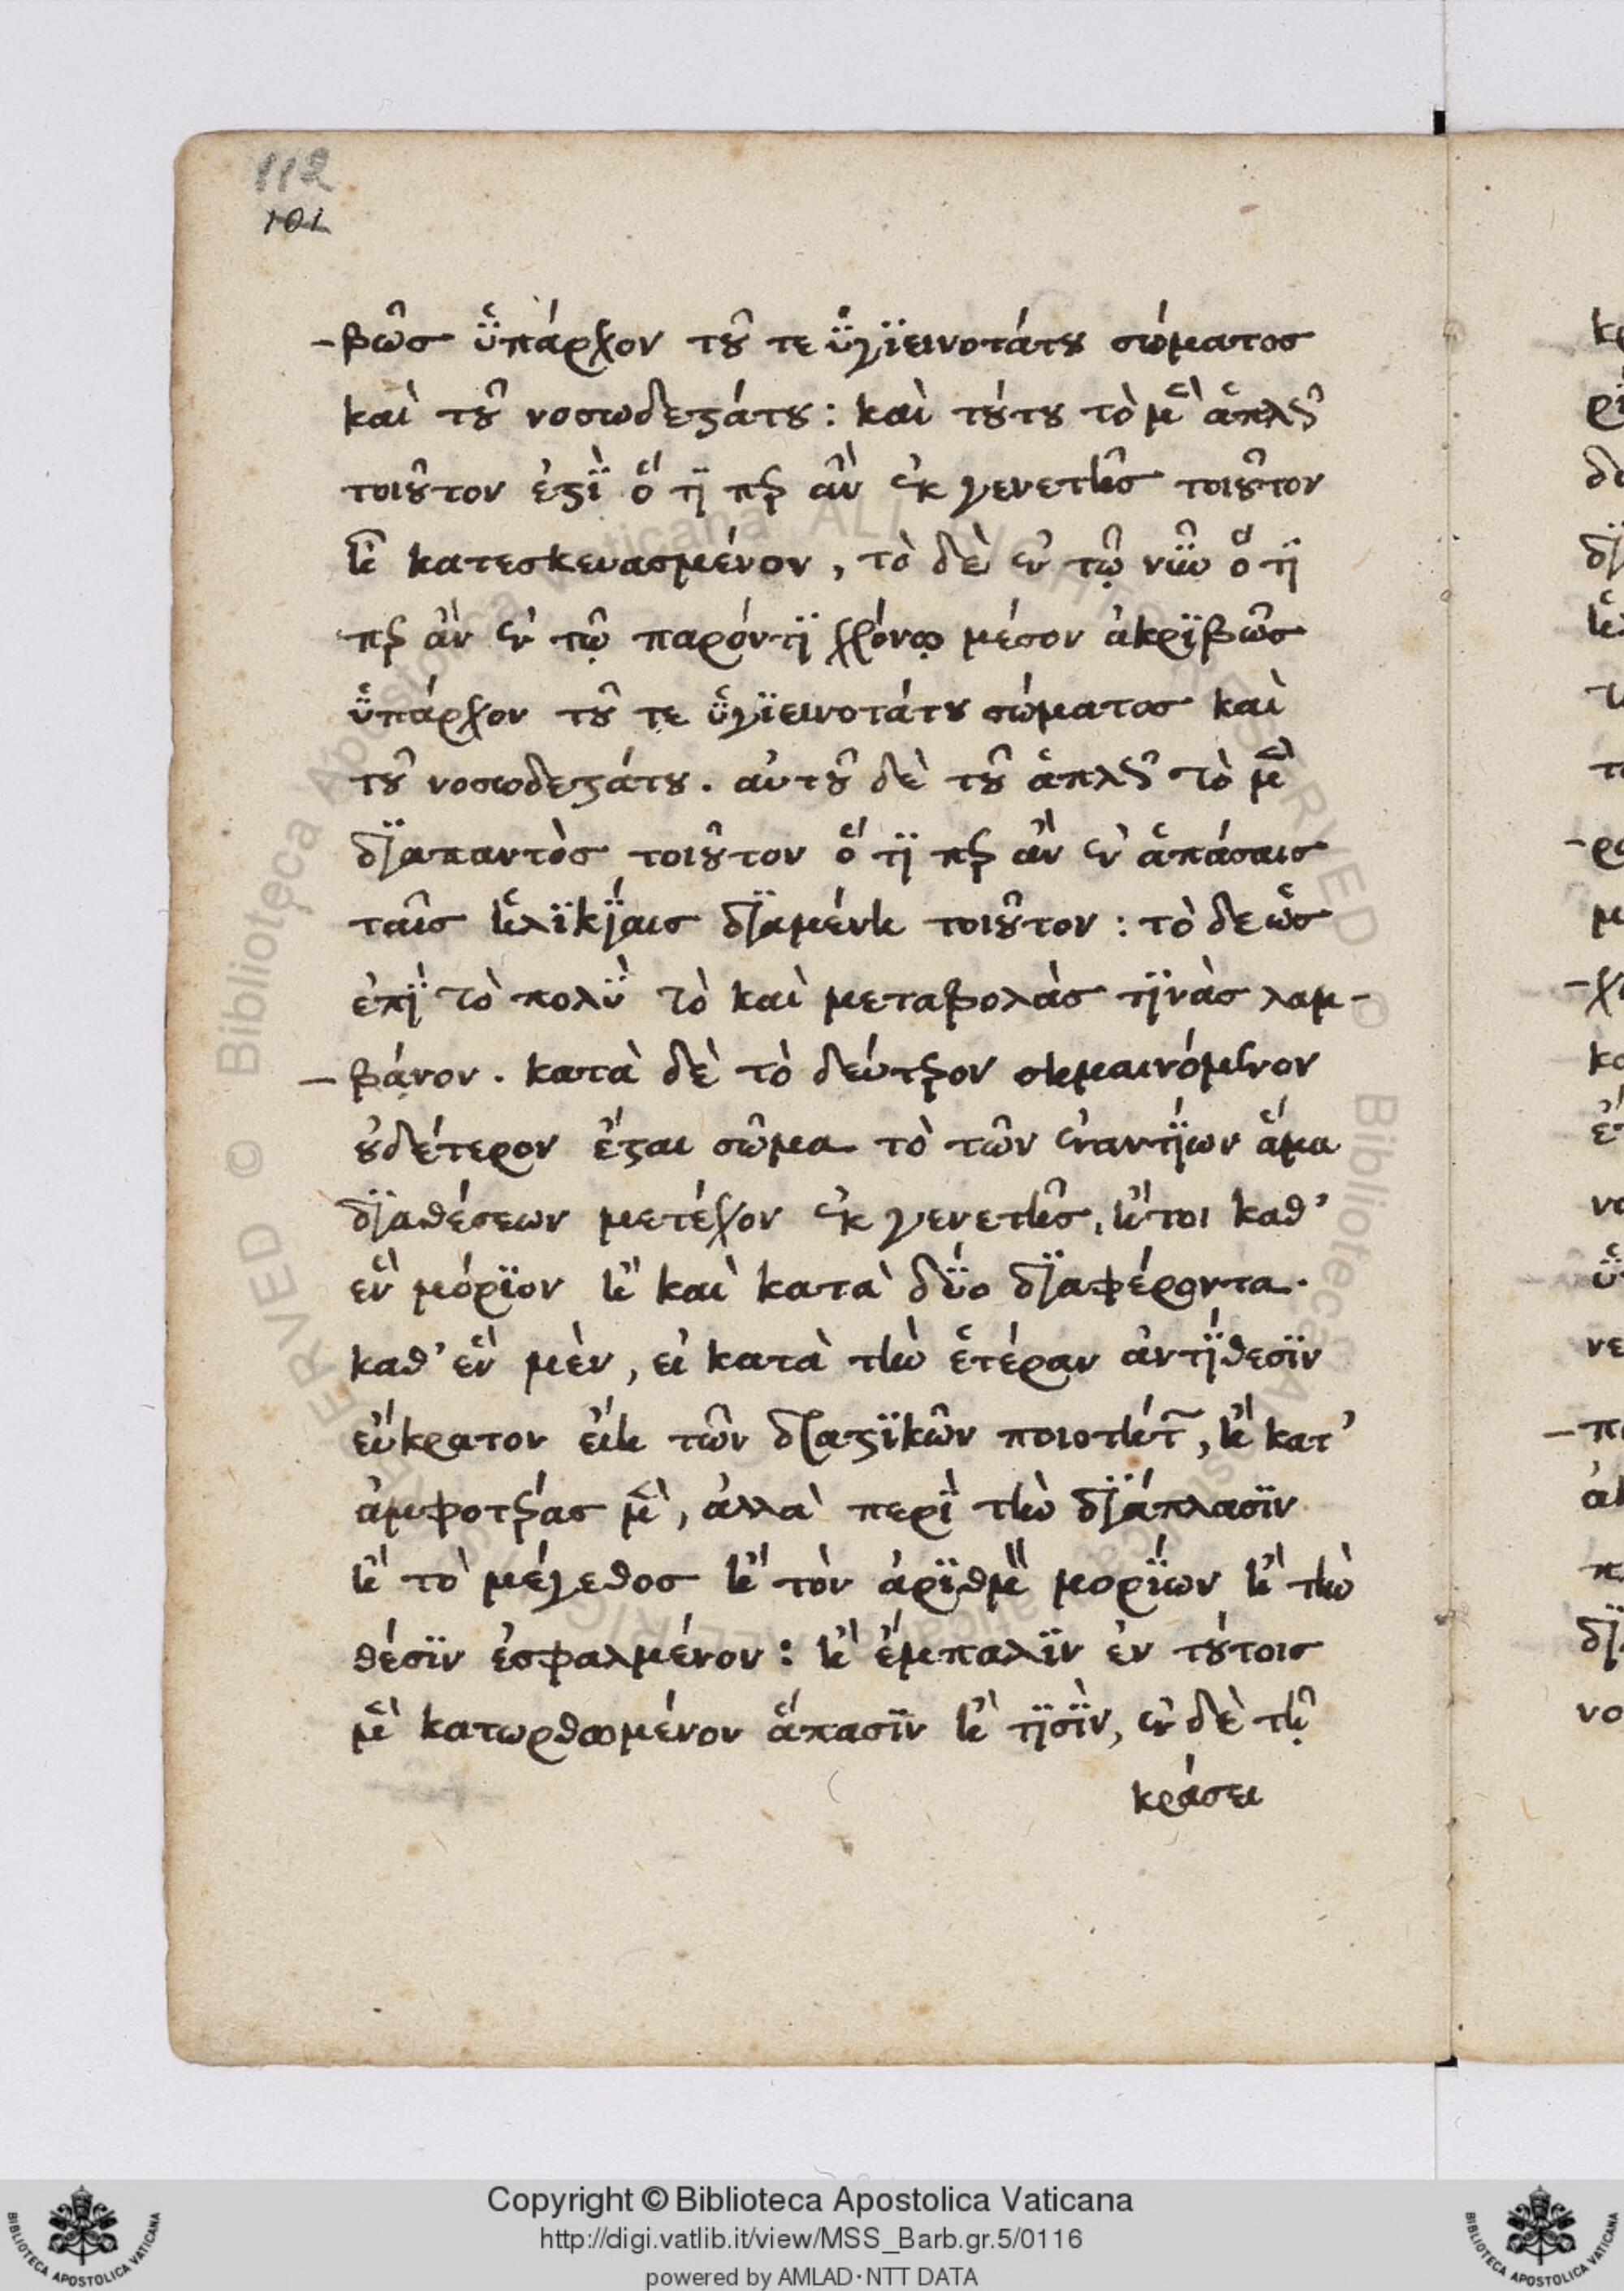 112
101
-βῶσ ὑπάρχον τοῦ τε ὑγϊεινοτάτου σώματοσ
καὶ τοῦ νοσωδεστάτου: καὶ τούτου τὸ μὲν ἁπλῶσ
τοιοῦτον ἐστὶ ὅ τι περ ἂν ἐκ γενετῆσ τοιοῦτον
ἦ κατεσκευασμένον, τὸ δὲ ἐν τῷ νῦν ὅ τι
περ ἂν ἐν τῷ παρόντϊ χρόνῳ μέσον ἀκρϊβῶσ
ὑπάρχον τοῦ τε ὑγϊεινοτάτου σώματοσ καὶ
τοῦ νοσωδεστάτου. αὐτοῦ δὲ τοῦ ἁπλῶσ τὸ μὲν
δϊαπαντὸσ τοιοῦτον ὅ τι περ ἂν ἐν ἁπάσαισ
ταῖσ ἡλϊκΐαισ δϊαμένη τοιοῦτον: τὸ δε ὡσ
ἐπὶ τὸ πολὺ τὸ καὶ μεταβολὰσ τϊνὰσ λαμ-
-βάνον. κατὰ δὲ τὸ δεύτερον σημαινόμενον
οὐδέτερον ἔσται σῶμα τὸ τῶν ἐναντίων ἅμα
δϊαθέσεων μετέχον ἐκ γενετῆσ, ἤτοι καθ’
ἓν μόρϊον ἢ καὶ κατὰ δύο δϊαφέροντα.
καθ’ ἓν μὲν, εἰ κατὰ τὴν ἑτέραν ἀντίθεσϊν
εὔκρατον εἴη τῶν δραστϊκῶν ποιοτήτων, ἢ κατ’
ἀμφοτέρασ μὲν, ἀλλὰ περὶ τὴν δϊάπλασϊν
ἢ τὸ μέγεθοσ ἢ τὸν ἀρϊθμὸν μορίων ἢ τὴν
θέσϊν ἐσφαλμένον: ἢ ἔμπαλϊν ἐν τούτοισ
μὲν κατωρθωμένον ἅπασϊν ἢ τϊσὶν, ἐν δὲ τῇ
κράσει
Copyright © Biblioteca Apostolica Vaticana
http://digi.vatlib.it/view/MSS_Barb.gr.5/0116
powered by AMLAD·NTT DATA